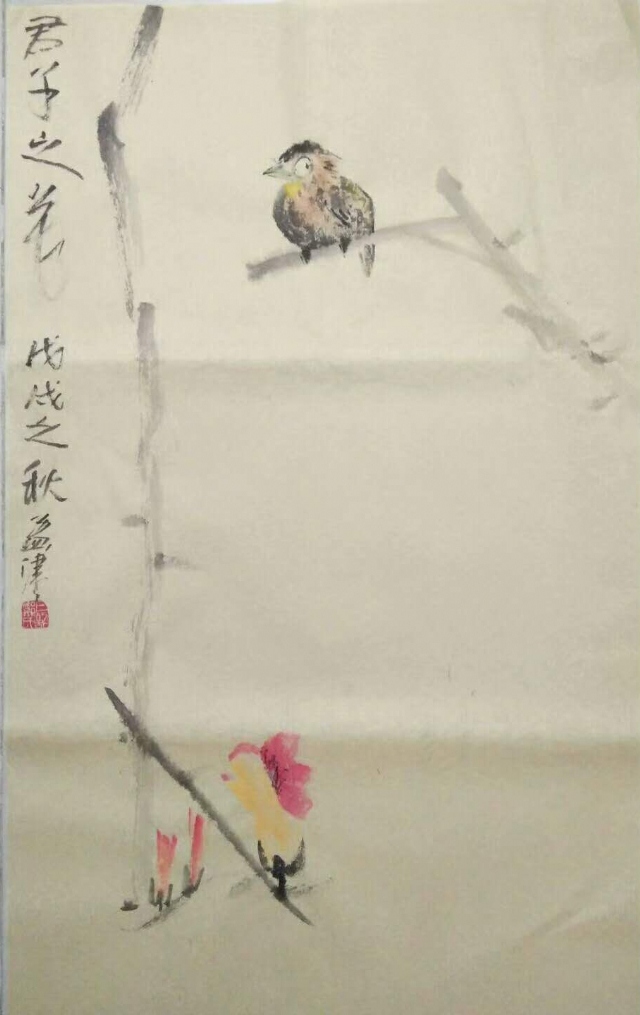 君子之花
戊戌之秋 益津